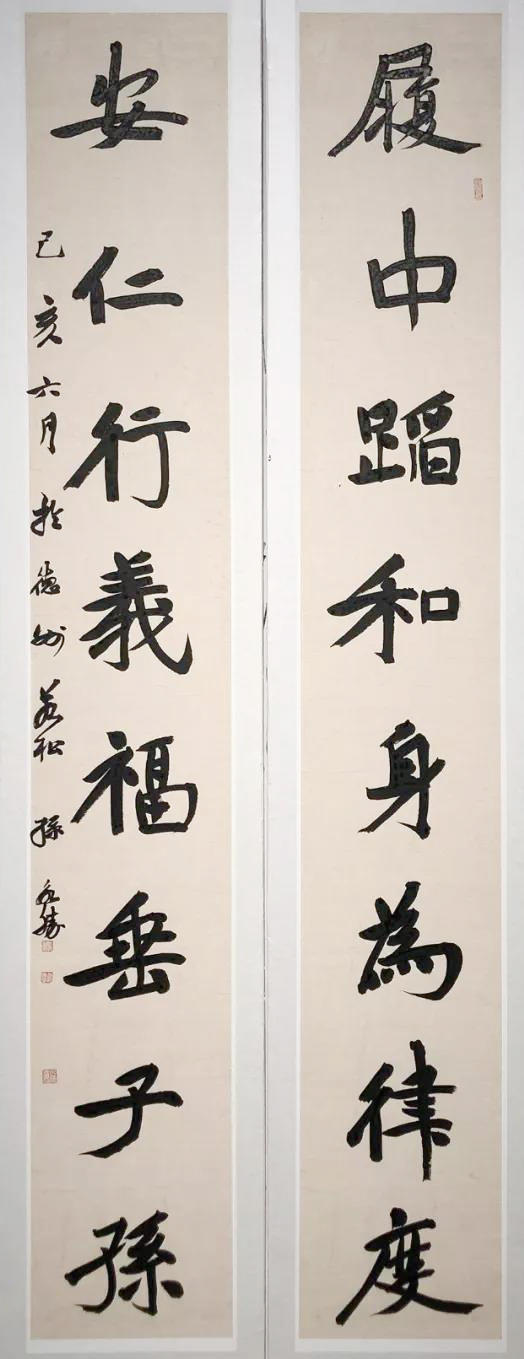 履中蹈和身為律度
安仁行義福垂子孫
己亥六月於德州 若松 孫永勝